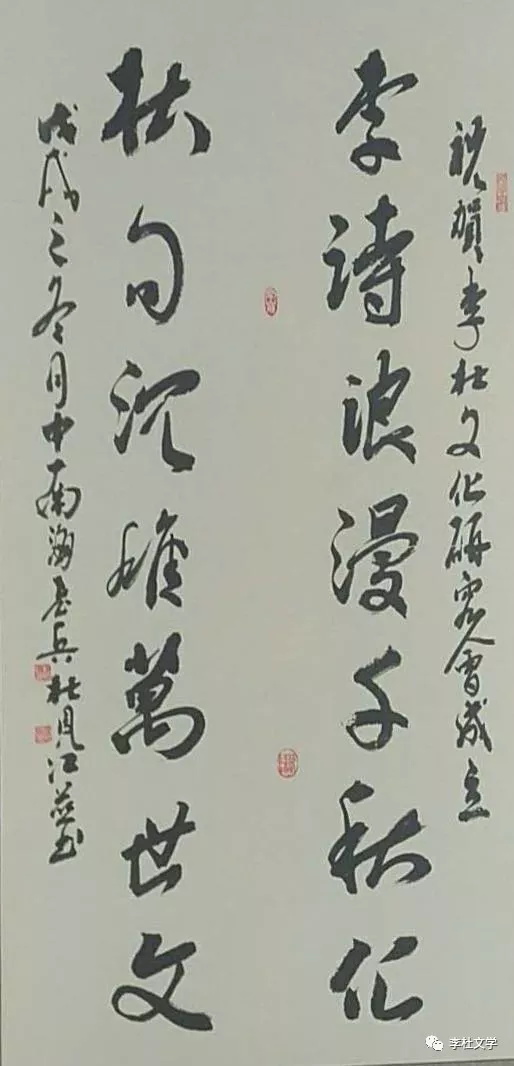 祝賀李杜文化研究會成立
李詩浪漫千秋化
杜句沉雄萬世文
戊戌之冬月中南海老兵杜江並书
李杜文学